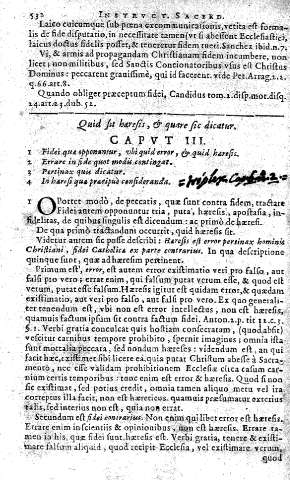 532 INSTRVCT. SACERD.
Laico cuicumque sub pœna excommunicationis, vetita est forma-
lis de fide disputatio, in necessitate tamen (vt si abessent Ecclesiastici)
laicus doctus fidelis posset, & teneretur fidem tueri. Sanchez ibid. n. 7.
Vi, & armis ad propagandam Christianam fidem incumbere, non
licet; non militibus, sed Sanctis Contionatoribus vsus est Christus
Dominus: peccarent grauissimè, qui id facerent. vide Pet. Arrag. 2. 2.
q. 66. art. 8.
Quando obliget præceptum fidei, Candidus tom. 2. disp. mor. disq.
24. art. 41. dub. 52.
Quid sit hæresis, & quare sic dicatur.
CAPVT III.
1 Fidei qua opponuntur, vbi quid error, & quid hæresis.
2 Errare in fide quot modis contingat.
3 Pertinax quis dicatur.
4 In hæresi qua præcipuè consideranda.
1 OPortet modò, de peccatis, quæ sunt contra fidem, tractare
Fidei autem opponuntur tria, puta, hæresis, apostasia, in-
fidelitas, de quibus singulis est dicendum: ac primò de hæresi.
De qua primò tractandum occurrit, quid hæresis sit.
Videtur autem sic posse describi: Hæresis est error pertinax hominis
Christiani, fidei Catholica ex parte contrarius. In qua descriptione
quinque sunt, quæ ad hæresim pertinent.
Primum est, error, est autem error existimatio veri pro falso, aut
falsi pro vero: errat enim, qui falsum putat verum esse, & quod est
verum, putat esse falsum. Hæresis igitur est quidam error, & quædam
existimatio, aut veri pro falso, aut falsi pro vero. Ex quo generali-
ter tenendum est, vbi non est error intellectus, non est hæresis,
quamuis factum ipsum sit contra factum fidei. Anton. 2. p. tit. 12. c.
5. 1. Verbi gratia conculcat quis hostiam consecratam, (quod absit)
vescitur carnibus tempore prohibito, spernit imagines; omnia ista
sunt mortalia peccata, sed nondum hæreses: videndum est, an qui
facit hæc, existimet sibi licere ea. quia putat Christum abesse à Sacra-
mento, nec esse validam prohibitionem Ecclesiæ circa casum car-
nium certis temporibus: tunc enim est error & hæresis. Quod si non
sic existimat, sed potius credit, omnia tamen aliquo metu vel ira
correptus illa facit, non est hæreticus. quamuis præsumatur exterius
talis, sed interius non est, quia non errat.
Secundum est fidei contrarius. Non enim quilibet error est hæresis.
Errare enim in scientiis & opinionibus, non est hæresis. Errare ta-
men in his, quæ fidei sunt, hæresis est. Verbi gratia, tenere & existi-
mare falsum aliquid, quod recipit Ecclesia, vel existimare verum,
quod